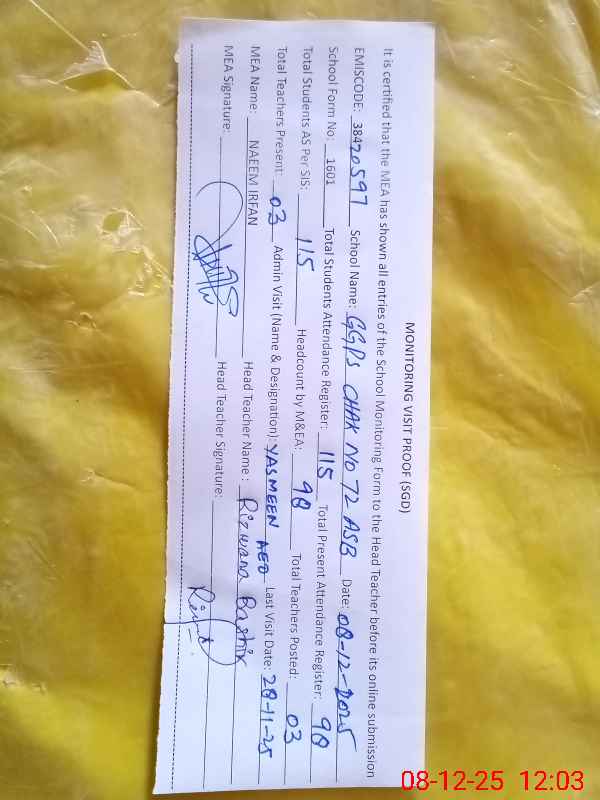 MONITORING VISIT PROOF (SGD)
It is certified that the MEA has shown all entries of the School Monitoring Form to the Head Teacher before its online submission
EMISCODE: 38420597 School Name: GGPS CHAK NO 72 ASB Date: 08-12-2025
School Form No: 1601 Total Students Attendance Register: 115 Total Present Attendance Register: 98
Total Students AS Per SIS: 115 Headcount by M&EA: 98 Total Teachers Posted: 03
Total Teachers Present: 03 Admin Visit (Name & Designation): YASMEEN AEO Last Visit Date: 28-11-25
MEA Name: NAEEM IRFAN Head Teacher Name : Rizwana Bashir
MEA Signature: Head Teacher Signature:
08-12-25 12:03